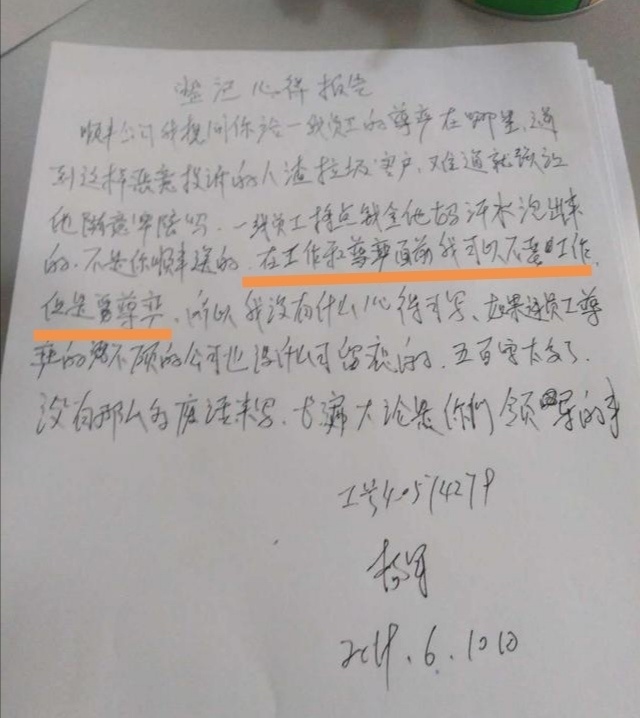 登记心得报告
顺丰公司我想问你给一线员工的尊严在哪里,遇
到这样恶意投诉的人渣垃圾客户,难道就该让
他随意宰陪吗.一线员工挣点钱全他妈汗水泡出来
的.不是你顺丰送的.在工作和尊严面前我可以不要工作
但是要尊严,所以我没有什么心得可写、如果连员工尊
严的都不顾的公司也没什么可留恋的.五百字太多了.
没有那么多废话来写.长篇大论是你们领导的事
工号40574279
6.10日